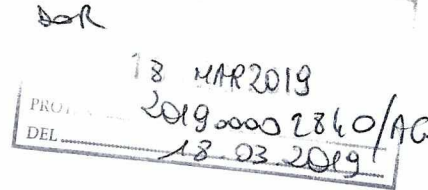 DOR
18 MAR 2019
PROT. 20190000 2840/AG
DEL 18.03.2019